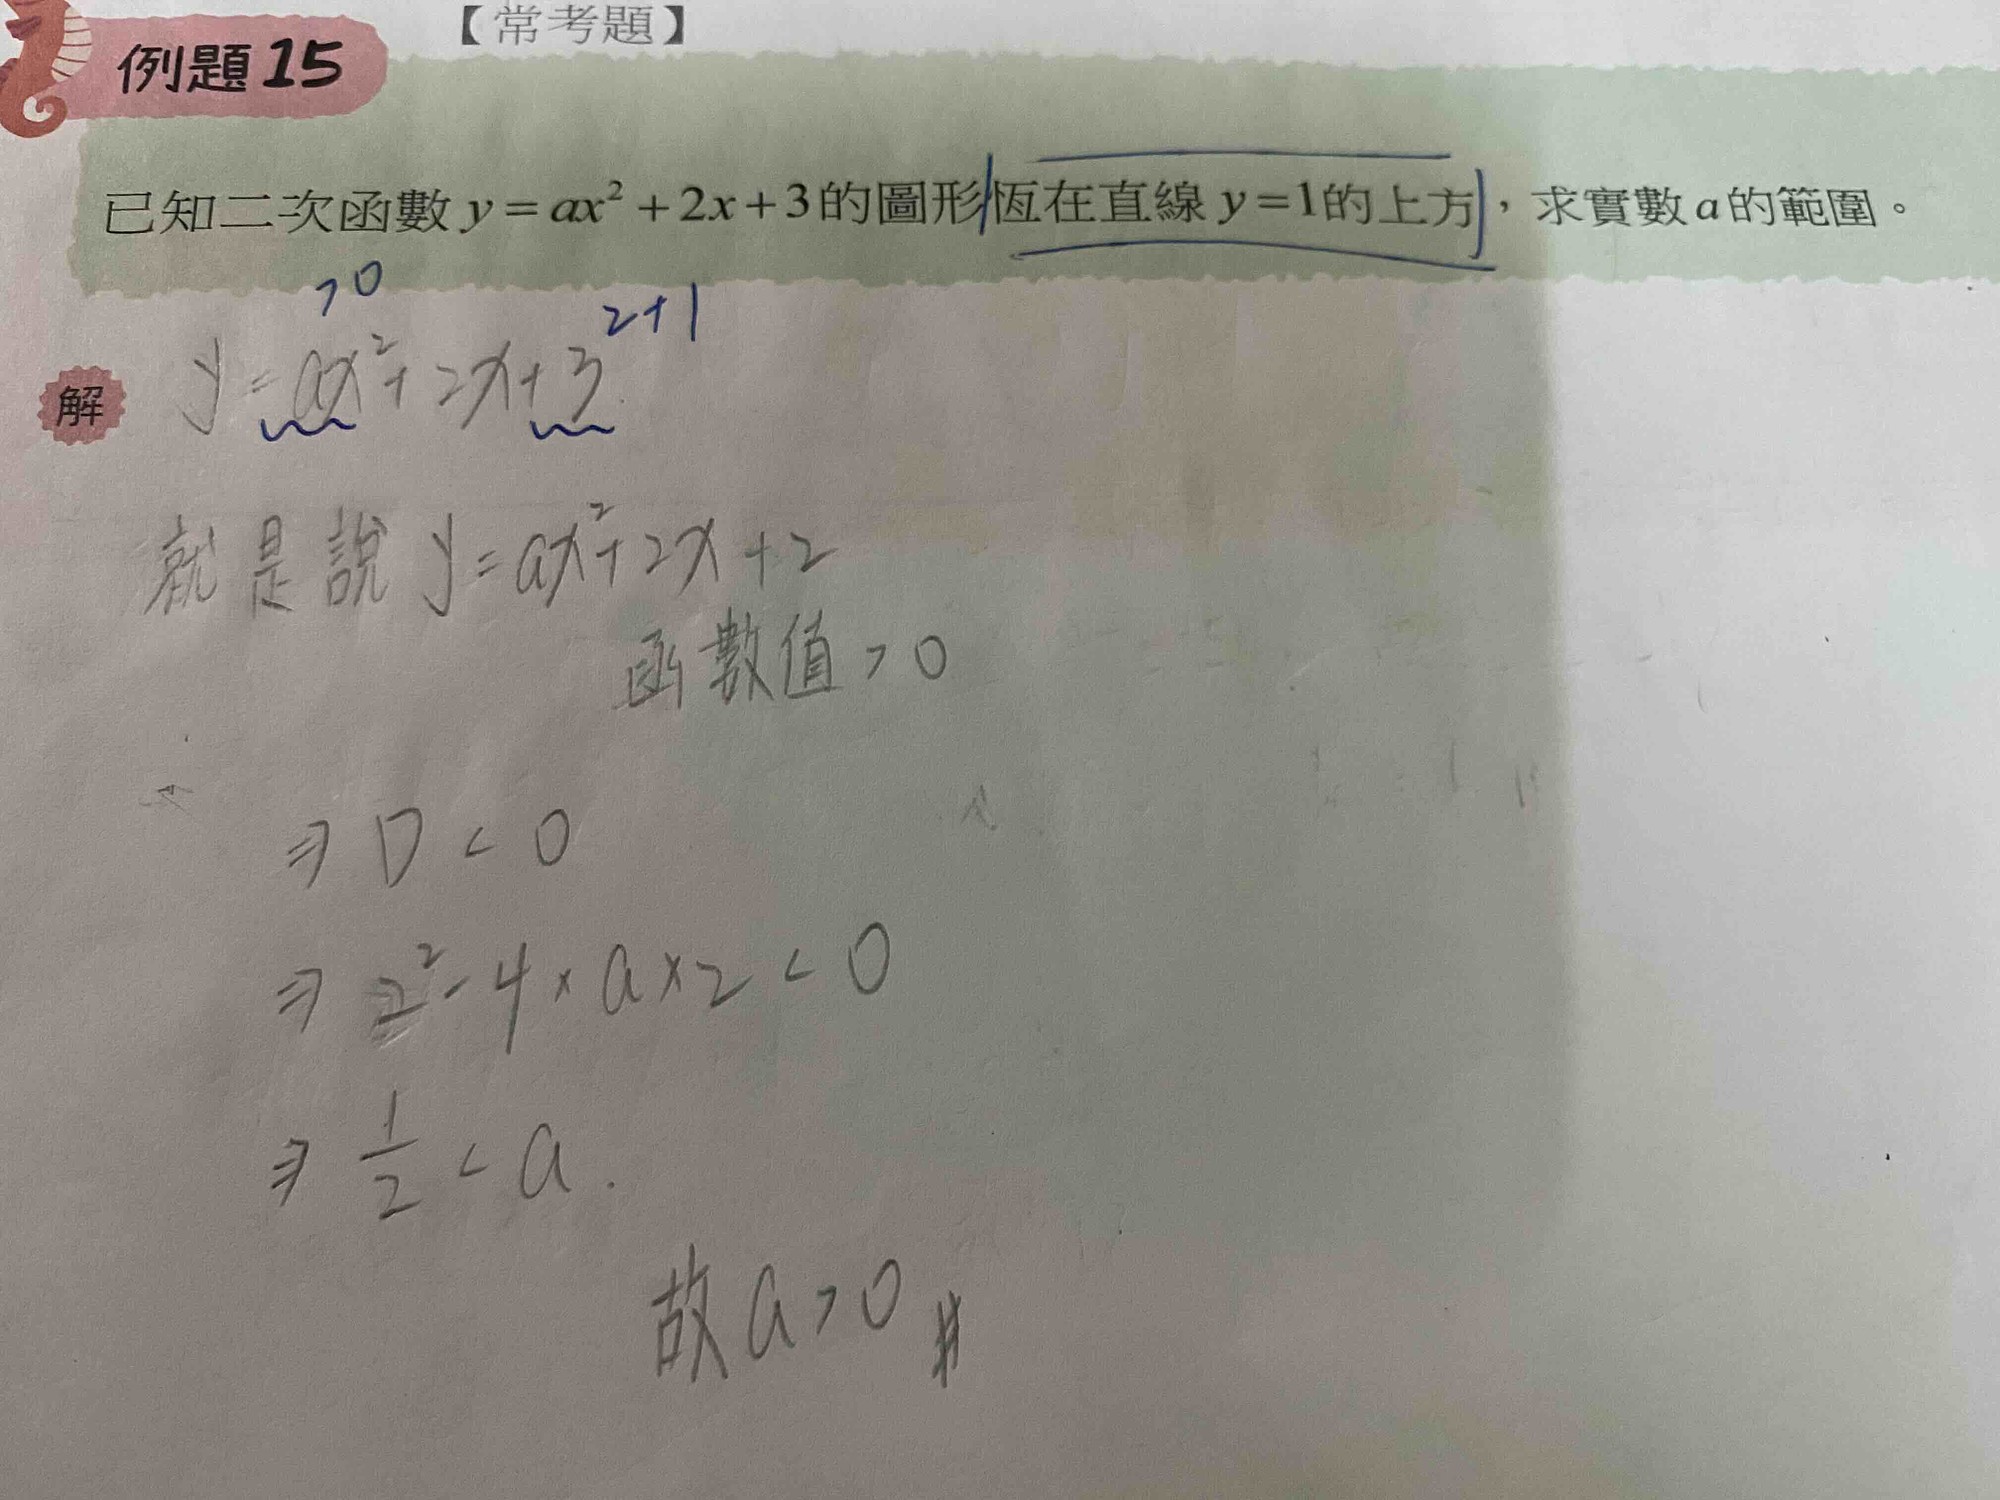 【常考題】
例題15
已知二次函數 y=ax²+2x+3的圖形恆在直線 y=1的上方，求實數 a 的範圍。
>0
2+1
解 y=ax²+2x+3
就是說 y=ax²+2x+2
函數值>0
⇒ D<0
⇒ 2²-4×a×2<0
⇒ 1/2<a.
故 a>0 #